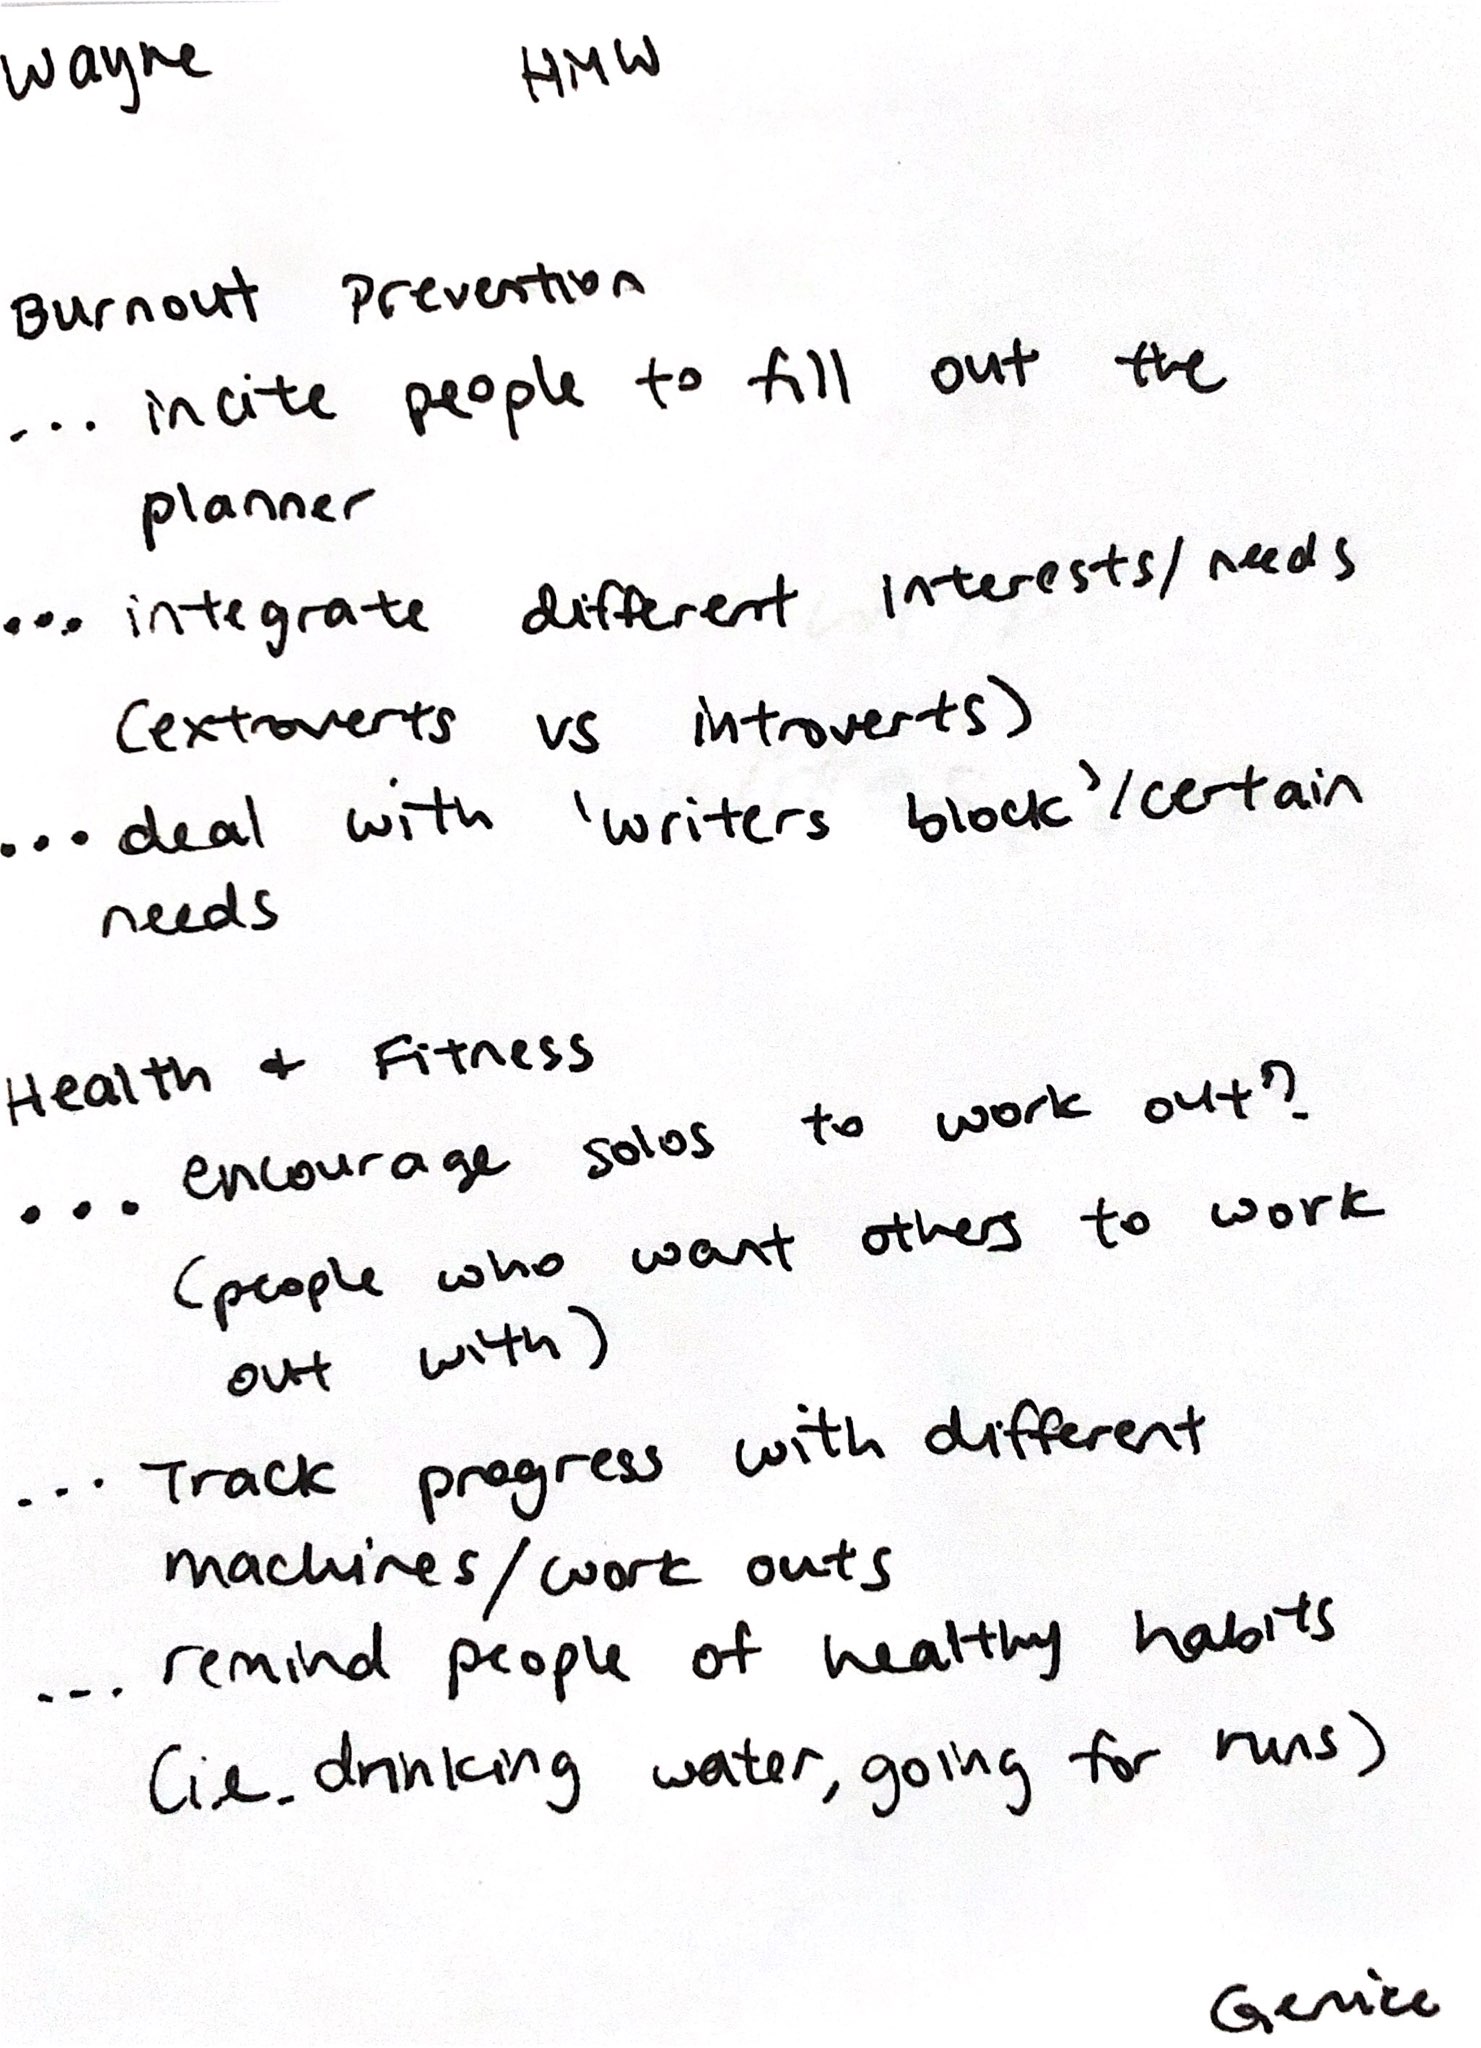 Wayne HMW
Burnout Prevention
... incite people to fill out the
planner
... integrate different interests/needs
(extroverts vs introverts)
... deal with 'writers block'/certain
needs
Health + Fitness
... encourage solos to work out?
(people who want others to work
out with)
... Track progress with different
machines/work outs
... remind people of healthy habits
(i.e. drinking water, going for runs)
Genice